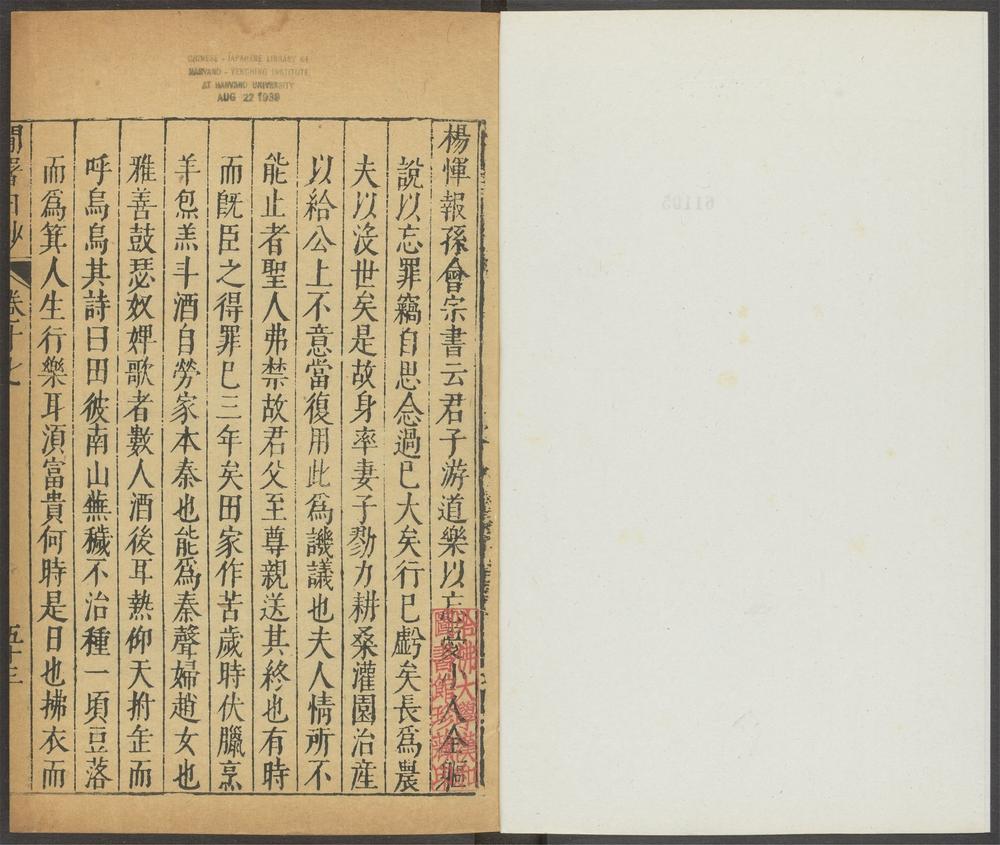 CHINESE - JAPANESE LIBRARY OF
HARVARD - YENCHING INSTITUTE
AT HARVARD UNIVERSITY
AUG 22 1939
楊惲報孫會宗書云君子游道樂以忘憂小人全軀
說以忘罪竊自思念過已大矣行已虧矣長爲農
夫以沒世矣是故身率妻子勠力耕桑灌園治産
以給公上不意當復用此爲譏議也夫人情所不
能止者聖人弗禁故君父至尊親送其終也有時
而旣臣之得罪已三年矣田家作苦歲時伏臘烹
羊炰羔斗酒自勞家本秦也能爲秦聲婦趙女也
雅善鼓瑟奴婢歌者數人酒後耳熱仰天拊缶而
呼烏烏其詩曰田彼南山蕪穢不治種一頃豆落
而爲箕人生行樂耳湏富貴何時是日也拂衣而
哈佛大學漢和
圖書館珍藏印
61105